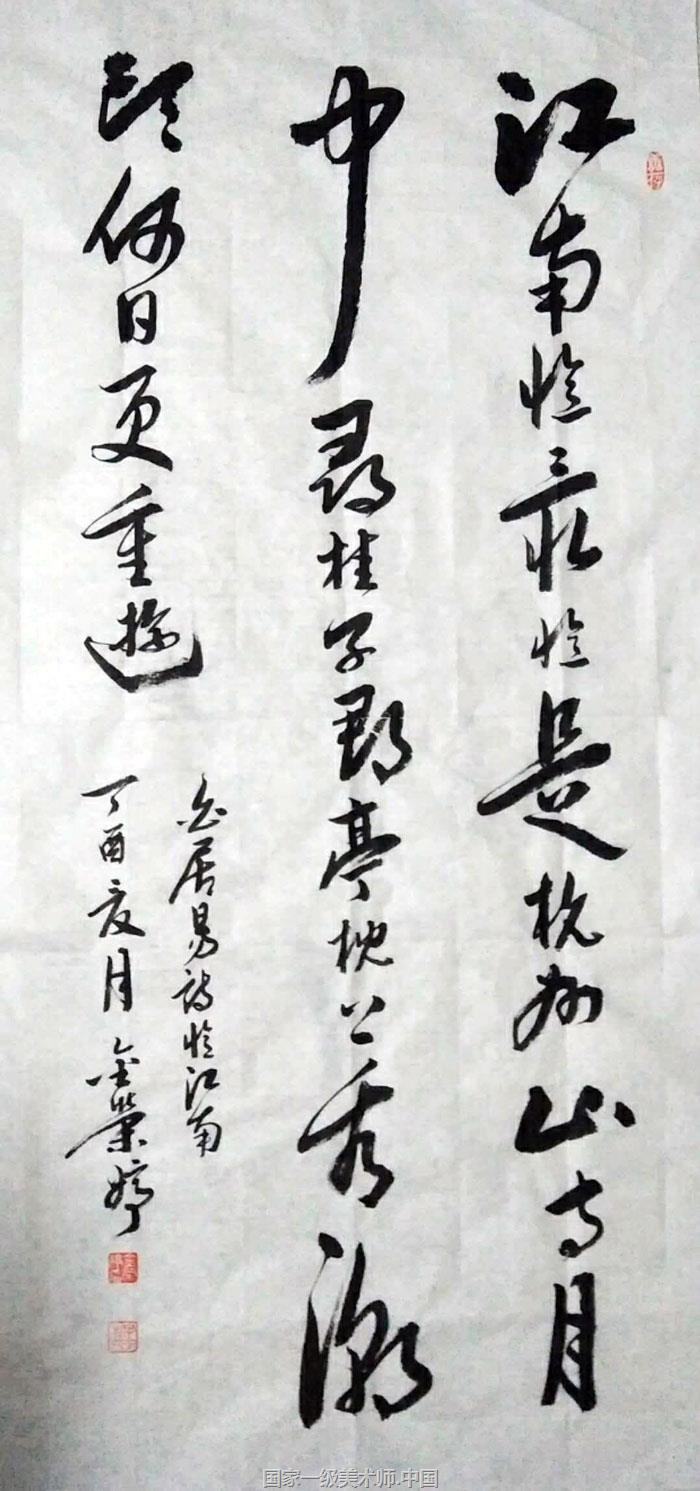 江南憶最憶是杭州山寺月
中尋桂子郡亭枕上看潮
頭何日更重遊
白居易詩憶江南
丁酉亥月金榮婷
国家一级美术师.中国